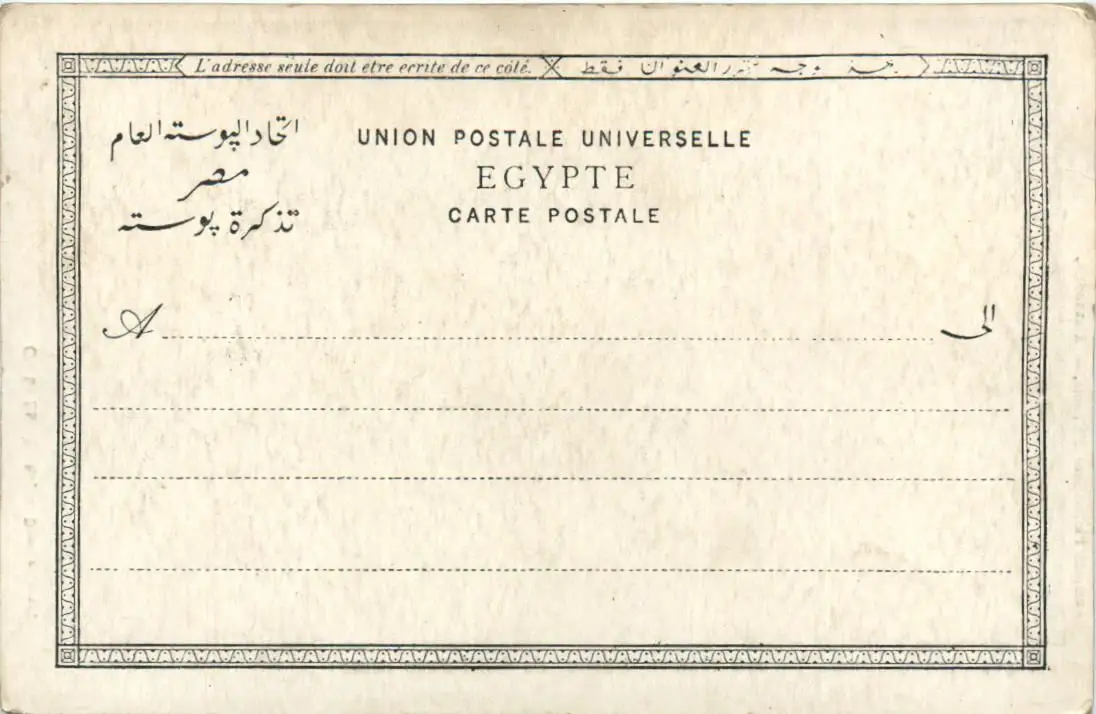 L'adresse seule doit etre ecrite de ce côté.
العنوان فقط
اتحاد البوسته العام
مصر
تذكرة بوسته
UNION POSTALE UNIVERSELLE
EGYPTE
CARTE POSTALE
A
الى